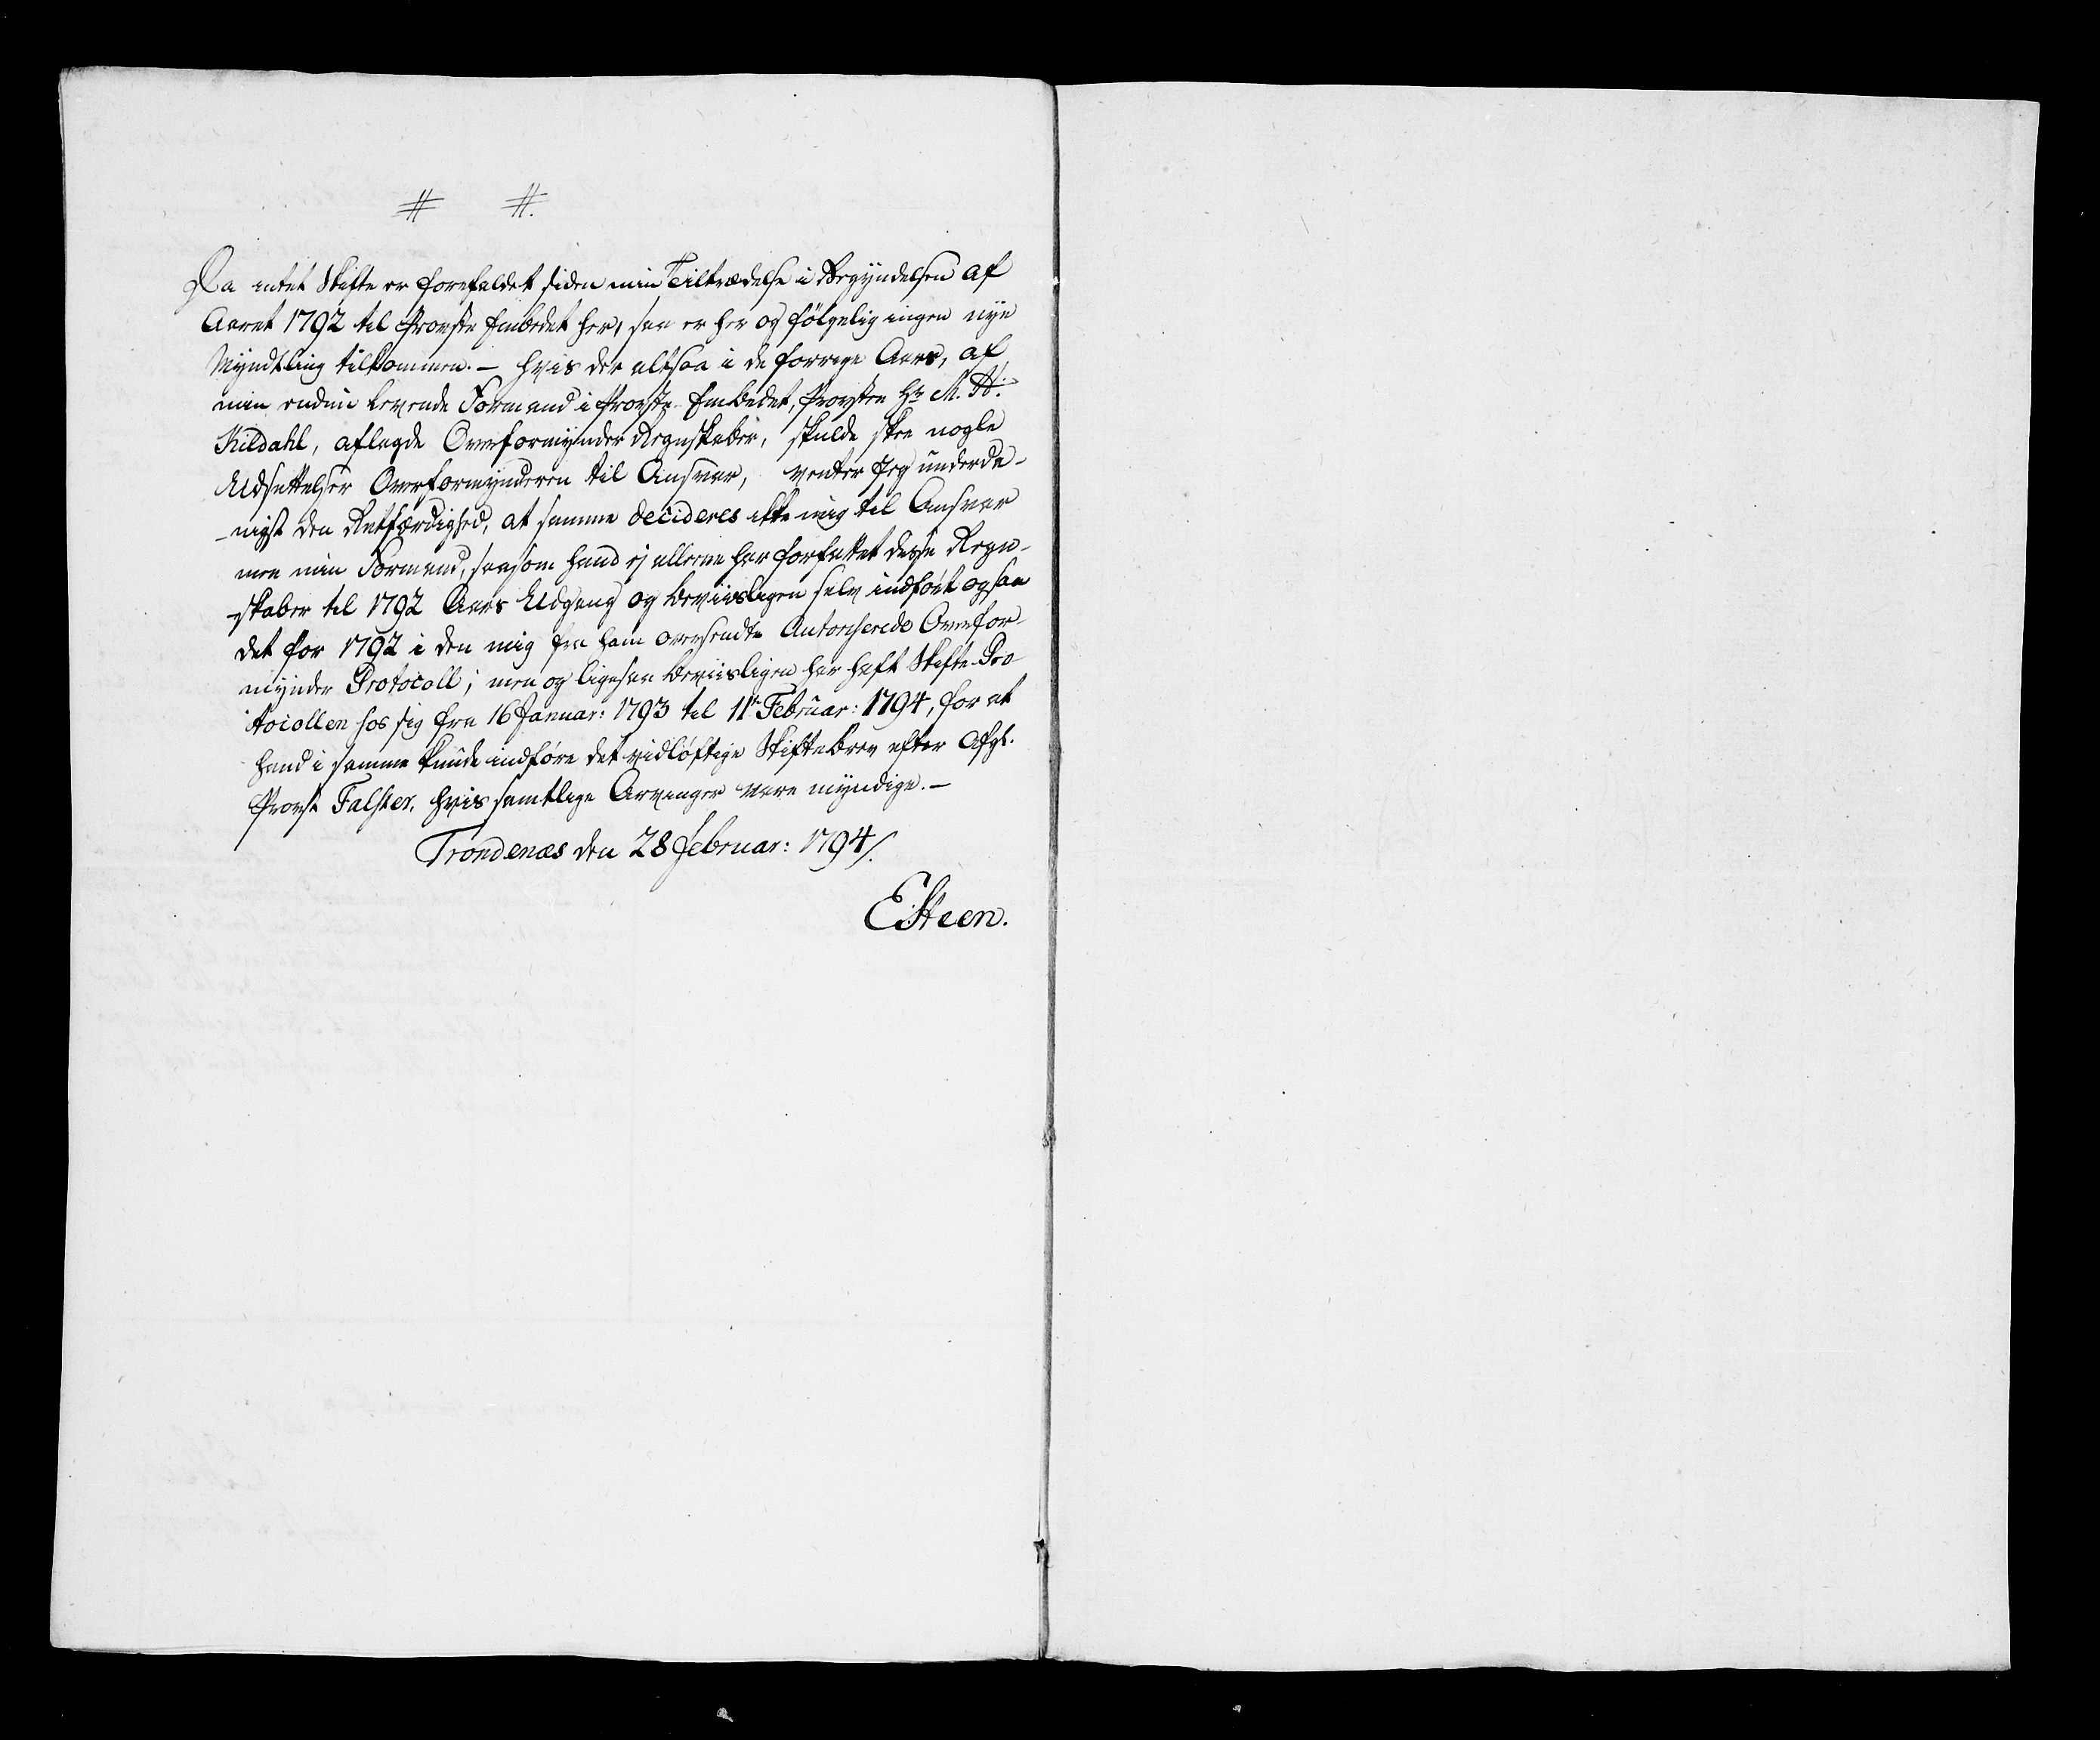 # #.
Da intet Skifte er forefaldet siden min Tiltrædelse i Begyndelsen af
Aaret 1792 til Provste Embedet her, saa er her og følgelig ingen nye
Myndtling tilkommen. – hvis der altsaa i de forrige Aars, af
min endnu levende Formand i Provste-Embedet, Provsten Hr M. H:
Kildahl, aflagde Overformynder Regnskaber, skulde skee nogle
Udsettelser Overformynderen til Ansvar, venter Jeg underda-
-nigst den Retfærdighed, at samme decideres ikke mig til Ansvar
men min Formand, saasom hand ej alleene har forfattet disse Regn-
-skaber til 1792 Aars Udgang og beviisligen selv indført ogsaa
det for 1792 i den mig fra ham oversendte Autoriserede Overfor-
mynder Protocoll; men og ligesaa beviisligen har haft Skifte-Pro
tocollen hos sig fra 16 Januar: 1793 til 11te Februar: 1794, for at
hand i samme kunde indføre det vidløftige Skiftebrev efter Afg.
Provst Falster, hvis samtlige Arvinger vare myndige. –
Trondenæs den 28 Februar: 1794/.
E Steen.